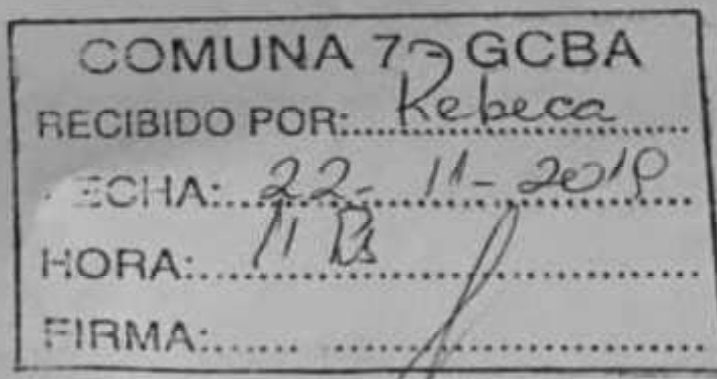 COMUNA 7 - GCBA
RECIBIDO POR: Rebeca
FECHA: 22-11-2019
HORA: 11
FIRMA: